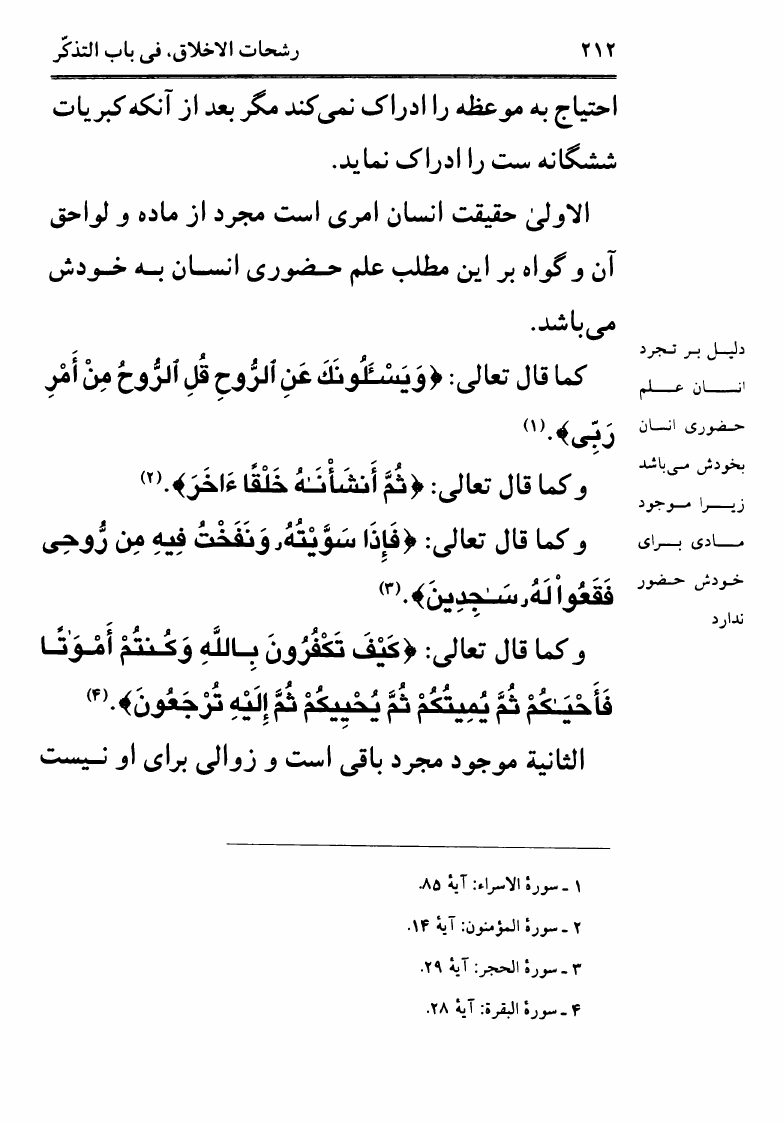 ۲۱۲
رشحات الاخلاق، فی باب التذکّر
احتیاج به موعظه را ادراک نمی‌کند مگر بعد از آنکه کبریات
ششگانه ست را ادراک نماید.
الاولیٰ حقیقت انسان امری است مجرد از ماده و لواحق
آن و گواه بر این مطلب علم حضوری انسان به خودش
می‌باشد.
کما قال تعالی: ﴿وَيَسْـَٔلُونَكَ عَنِ ٱلرُّوحِ قُلِ ٱلرُّوحُ مِنْ أَمْرِ
رَبِّى﴾.(۱)
و کما قال تعالی: ﴿ثُمَّ أَنشَأْنَـٰهُ خَلْقًا ءَاخَرَ﴾.(۲)
و کما قال تعالی: ﴿فَإِذَا سَوَّيْتُهُۥ وَنَفَخْتُ فِيهِ مِن رُّوحِى
فَقَعُواْ لَهُۥ سَـٰجِدِينَ﴾.(۳)
و کما قال تعالی: ﴿كَيْفَ تَكْفُرُونَ بِـاللَّهِ وَكُنتُمْ أَمْوَٰتًا
فَأَحْيَـٰكُمْ ثُمَّ يُمِيتُكُمْ ثُمَّ يُحْيِيكُمْ ثُمَّ إِلَيْهِ تُرْجَعُونَ﴾.(۴)
الثانیة موجود مجرد باقی است و زوالی برای او نیست
دلیل بر تجرد
انسان علم
حضوری انسان
بخودش می‌باشد
زیرا موجود
مادی برای
خودش حضور
ندارد
۱ ـ سورهٔ الاسراء: آیهٔ ۸۵.
۲ ـ سورهٔ المؤمنون: آیهٔ ۱۴.
۳ ـ سورهٔ الحجر: آیهٔ ۲۹.
۴ ـ سورهٔ البقرة: آیهٔ ۲۸.